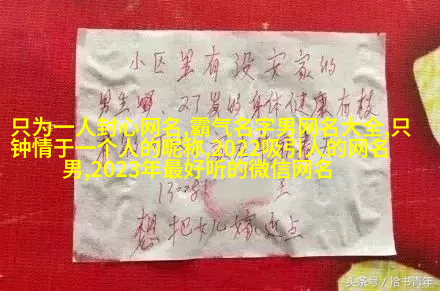 小区里有没安家的
男生嘿 27岁的身体健康有枝
只为一人封心网名,霸气名字男网名大全,只
钟情于一个人的昵称,2022吸引人的网名
男,2023年最好听的微信网名
想把女儿嫁近点
头条号／拾书青年